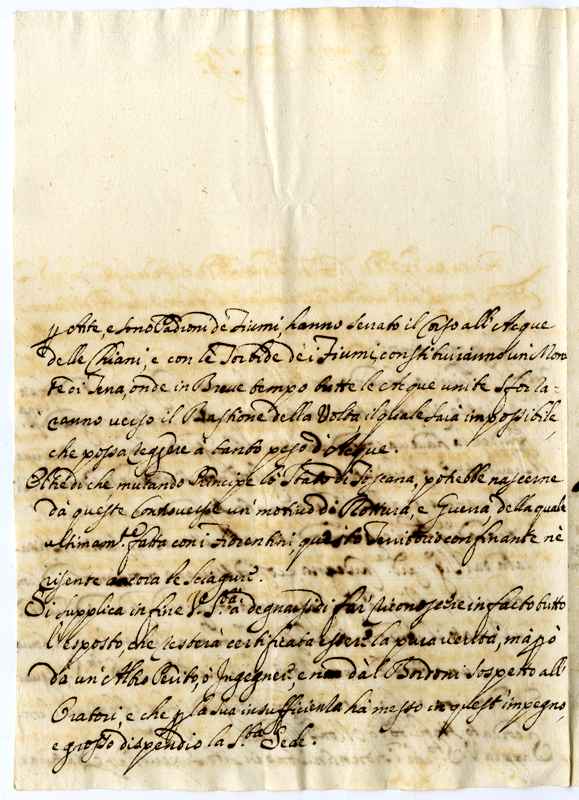 p Arte, e sono Padroni de Fiumi, hanno serrato il Corso all'Acque
delle Chiani, e con le Torbide dei Fiumi, constituiranno un Mon=
te di Tena, onde in Breve tempo tutte le Acque unite sfor la=
ranno verso il Bastione della Volta, il quale sarà impossibile,
che possa reggere à tanto peso d'Acque.
Oltre di che mutando Principe lo Stato di Toscana, potrebbe nascerne
da queste Controversie un motivo di Rottura, e Guerra, della quale
ultimam.te fatta con i Fiorentini, questo Territorio confinante nè
risente ancora le Sciagure.
Si supplica in fine V.a S.tà à degnarsi di far riconoscere in facto tutto
l'esposto, che resterà certificata esser la pura verità, ma p ò
da un'Altro Perito, ò Ingegnere, e non dal Bordoni sospetto all'
Oratori, e che p la sua insufficienza hà messo in quest'impegno,
e grosso dispendio la S.ta Sede.